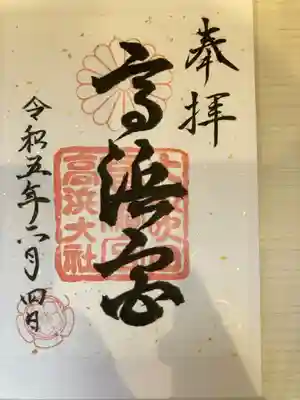 奉拝
高浜宮
令和五年六月四日
高浜大社